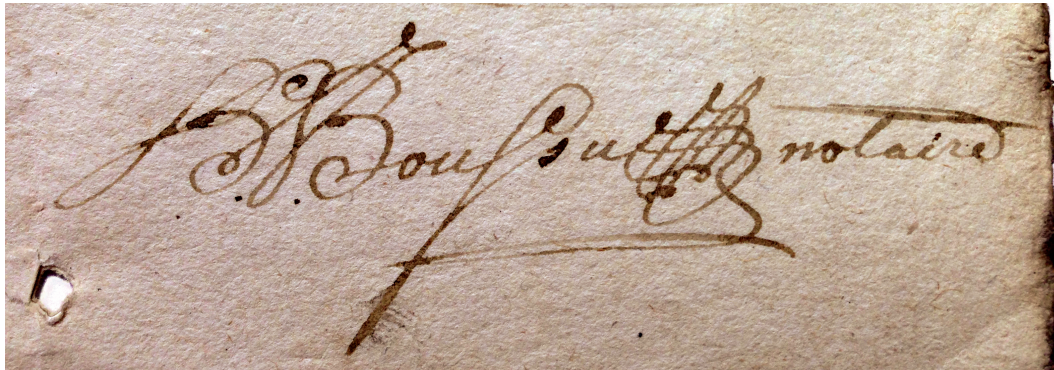 Boussu notaire